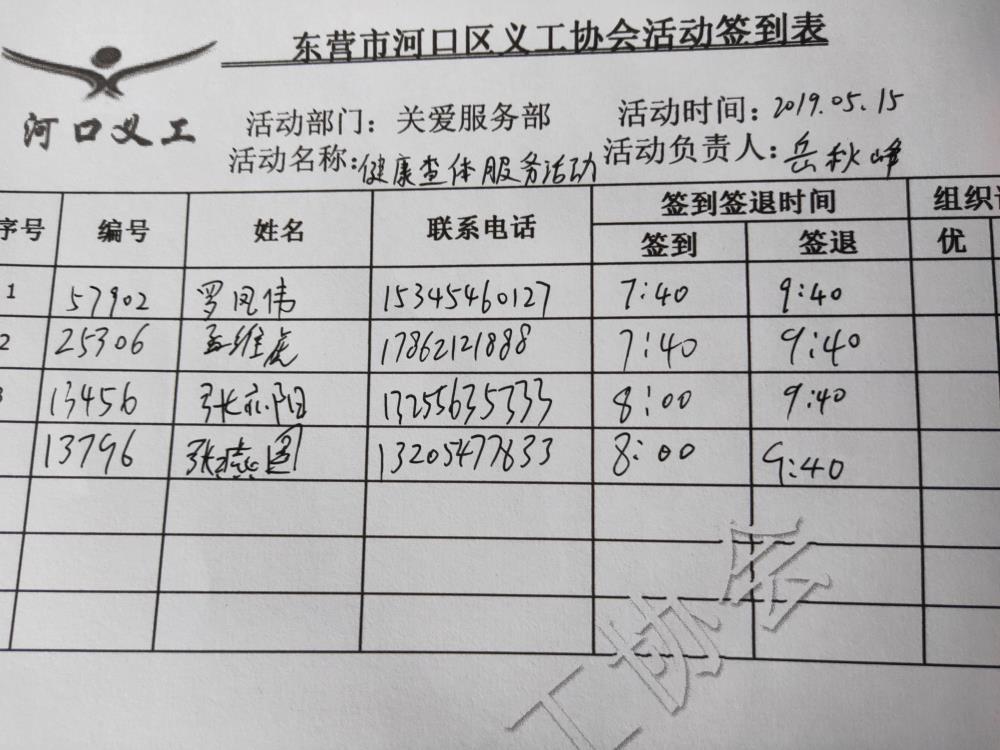 东营市河口区义工协会活动签到表
河口义工
活动部门：关爱服务部 活动时间：2019.05.15
活动名称：健康查体服务活动 活动负责人：岳秋峰
序号 编号 姓名 联系电话 签到签退时间 组织
签到 签退 优
1 57902 罗凤伟 15345460127 7:40 9:40
2 25306 孟维虎 17862121888 7:40 9:40
13456 张 阳 13255635333 8:00 9:40
13796 张 13205477833 8:00 9:40
工协会